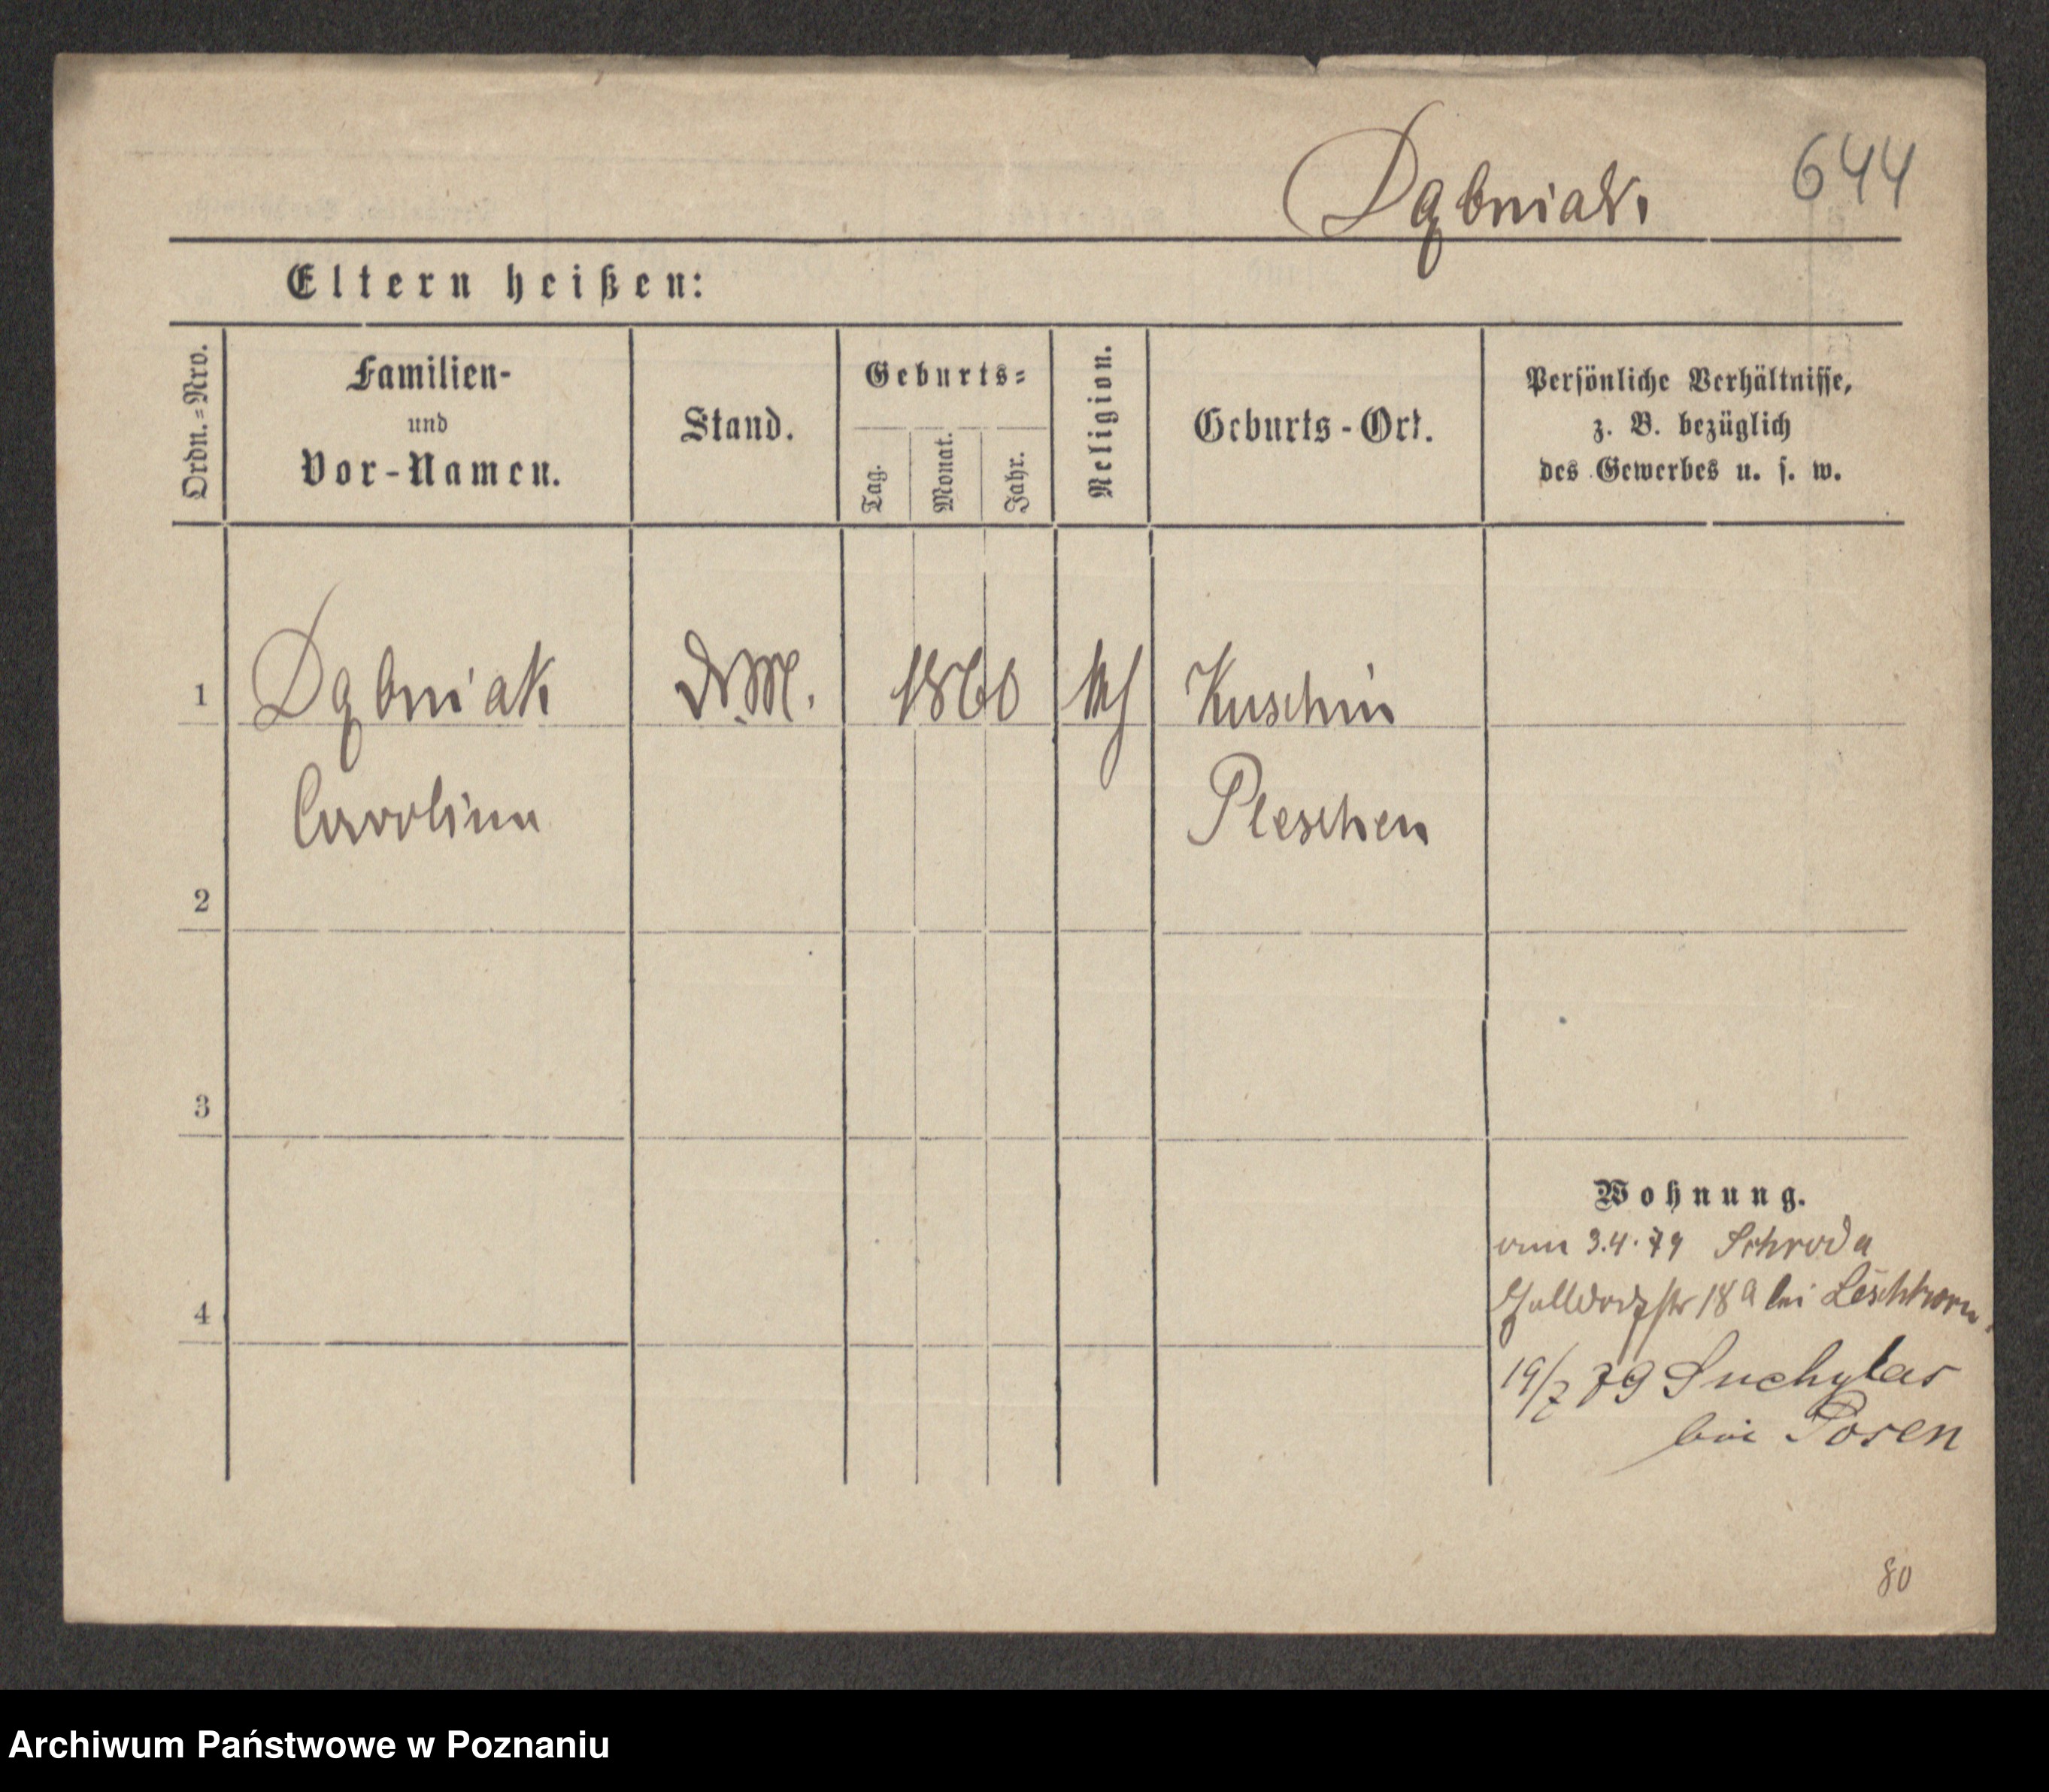 Dąbniak.
644
Eltern heißen:
Ordn.=Nro.
Familien-
und
Vor-Namen.
Stand.
Geburts=
Tag.
Monat.
Jahr.
Religion.
Geburts-Ort.
Persönliche Verhältnisse,
z. B. bezüglich
des Gewerbes u. s. w.
1
Dąbniak
D.M.
1860
Kuschin
Carolina
Pleschen
2
3
4
Wohnung.
3.4.79 Schroda
18a bei
19/7 79 Suchylas
bei Posen
80
Archiwum Państwowe w Poznaniu